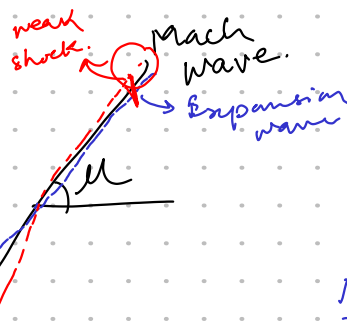 weak
shock.
Mach
wave.
Expansion
wave
μ